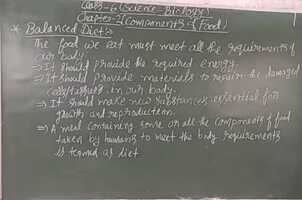 Class-6 (Science Biology)
Chapter-2 (components of Food)
* Balanced Diet:-
The food we eat must meet all the requirements of
our body.
⇒ It should provide the required energy.
⇒ It should provide materials to repair the damaged
cells/tissues in our body.
⇒ It should make new substances essential for
growth and reproduction.
⇒ A meal containing some or all the components of food
taken by humans to meet the body requirements
is termed as diet